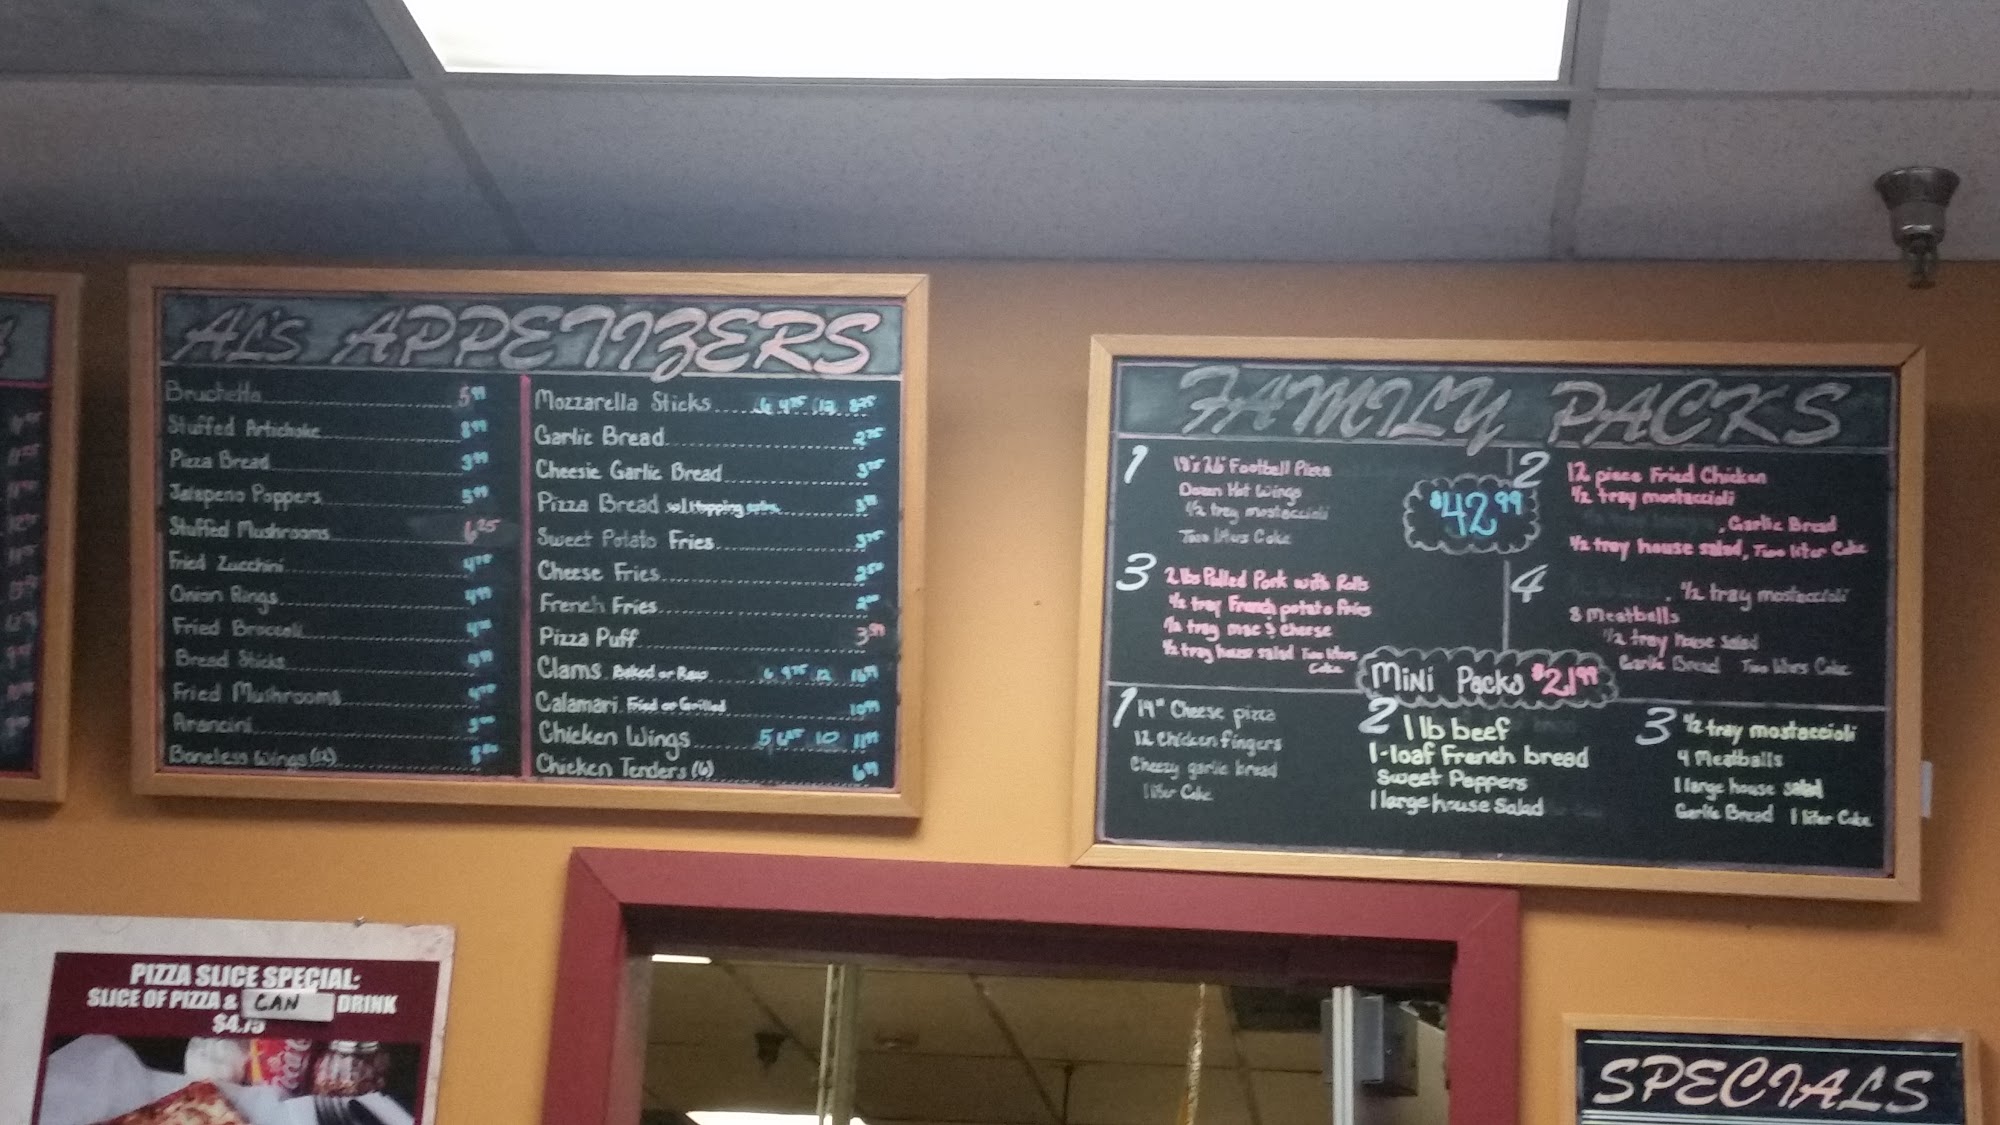 AL'S APPETIZERS
Bruchetta 5.99
Stuffed Artichoke 8.99
Pizza Bread 3.99
Jalapeno Poppers 5.99
Stuffed Mushrooms 6.25
Fried Zucchini
Onion Rings 4.99
Fried Broccoli
Bread Sticks 4.99
Fried Mushrooms
Arancini
Boneless Wings (12)
Mozzarella Sticks 6 4.75 12 8.75
Garlic Bread 2.75
Cheesie Garlic Bread 3.75
Pizza Bread w/1 topping
Sweet Potato Fries 3.75
Cheese Fries 2.50
French Fries 2.00
Pizza Puff 3.99
Clams Baked or Raw 6 9.75 12
Calamari Fried or Grilled 10.99
Chicken Wings 5 10 11.99
Chicken Tenders (6) 6.99
FAMILY PACKS
$42.99
1 18"x26" Football Pizza
Dozen Hot Wings
1/2 tray mostaccioli
Two liters Coke
2 12 piece Fried Chicken
1/2 tray mostaccioli
, Garlic Bread
1/2 tray house salad, Two liter Coke
3 2 lbs Pulled Pork with Rolls
1/2 tray French potato fries
1/2 tray mac & cheese
1/2 tray house salad Two liters
Coke
4 , 1/2 tray mostaccioli
8 Meatballs
1/2 tray House Salad
Garlic Bread Two liters Coke
Mini Packs $21.99
1 14" Cheese pizza
12 Chicken fingers
Cheesy garlic bread
1 liter Coke
2 1 lb beef
1-loaf French bread
Sweet Peppers
1 large house Salad
3 1/2 tray mostaccioli
4 Meatballs
1 large house salad
Garlic Bread 1 liter Coke
PIZZA SLICE SPECIAL:
SLICE OF PIZZA & CAN DRINK
$4.75
SPECIALS